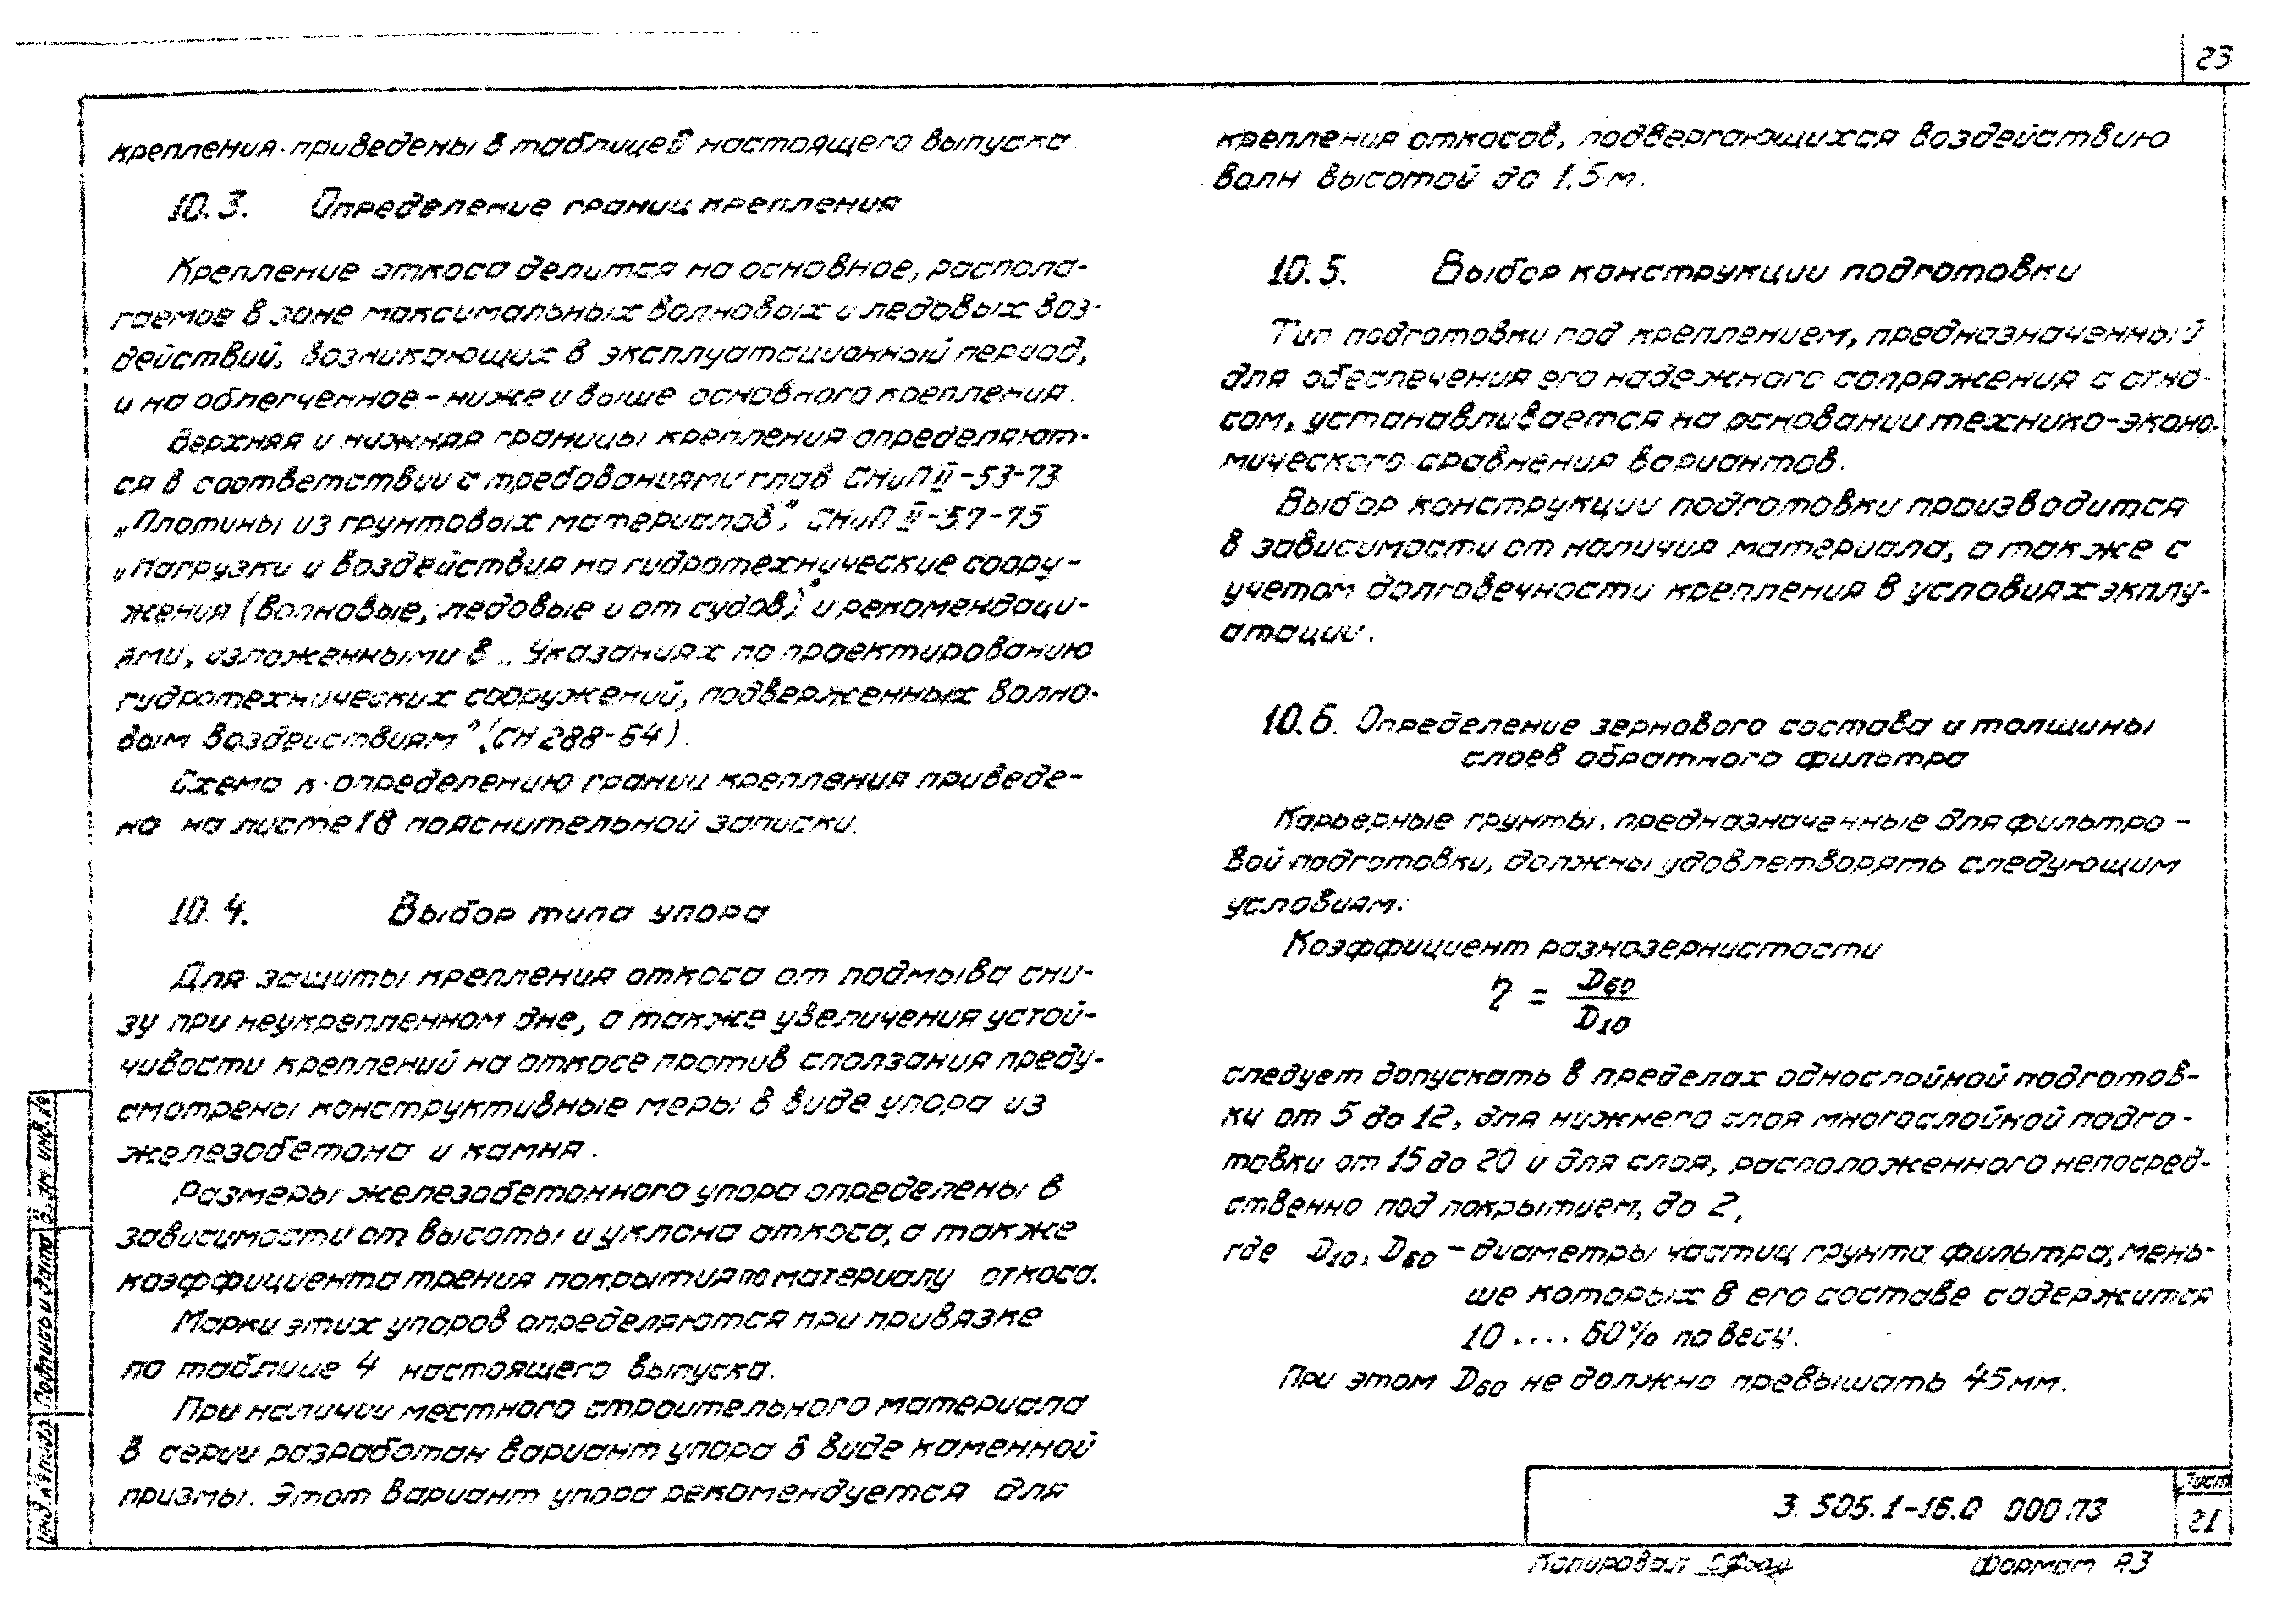 23
крепления приведены в таблице 6 настоящего выпуска
10.3. Определение границ крепления
Крепление откоса делится на основное, распола-
гаемое в зоне максимальных волновых и ледовых воз-
действий, возникающих в эксплуатационный период,
и на облегченное - ниже и выше основного крепления.
Верхняя и нижняя границы крепления определяют-
ся в соответствии с требованиями глав СНиП II-53-73
„Плотины из грунтовых материалов", СНиП II-57-75
„Нагрузки и воздействия на гидротехнические соору-
жения (волновые, ледовые и от судов)" и рекомендаци-
ями, изложенными в „Указаниях по проектированию
гидротехнических сооружений, подверженных волно-
вым воздействиям" (СН 288-64).
Схема к определению границ крепления приведе-
на на листе 18 пояснительной записки.
10.4. Выбор типа упора
Для защиты крепления откоса от подмыва сни-
зу при неукрепленном дне, а также увеличения устой-
чивости креплений на откосе против сползания преду-
смотрены конструктивные меры в виде упора из
железобетона и камня.
Размеры железобетонного упора определены в
зависимости от высоты и уклона откоса, а также
коэффициента трения покрытия по материалу откоса.
Марки этих упоров определяются при привязке
по таблице 4 настоящего выпуска.
При наличии местного строительного материала
в серии разработан вариант упора в виде каменной
призмы. Этот вариант упора рекомендуется для
крепления откосов, подвергающихся воздействию
волн высотой до 1,5 м.
10.5. Выбор конструкции подготовки
Тип подготовки под креплением, предназначенный
для обеспечения его надежного сопряжения с отко-
сом, устанавливается на основании технико-эконо-
мического сравнения вариантов.
Выбор конструкции подготовки производится
в зависимости от наличия материала, а также с
учетом долговечности крепления в условиях экплу-
атации.
10.6. Определение зернового состава и толщины
слоев обратного фильтра
Карьерные грунты, предназначенные для фильтро-
вой подготовки, должны удовлетворять следующим
условиям:
Коэффициент разнозернистости
η = D60 / D10
следует допускать в пределах однослойной подготов-
ки от 5 до 12, для нижнего слоя многослойной подго-
товки от 15 до 20 и для слоя, расположенного непосред-
ственно под покрытием, до 2,
где D10, D60 - диаметры частиц грунта фильтра, мень-
ше которых в его составе содержится
10 .... 60% по весу.
При этом D60 не должно превышать 45 мм.
3.505.1-16.0 000 ПЗ
Лист
21
Копировал
Формат А3
Инв. № подл.
Подпись и дата
Взам. инв. №